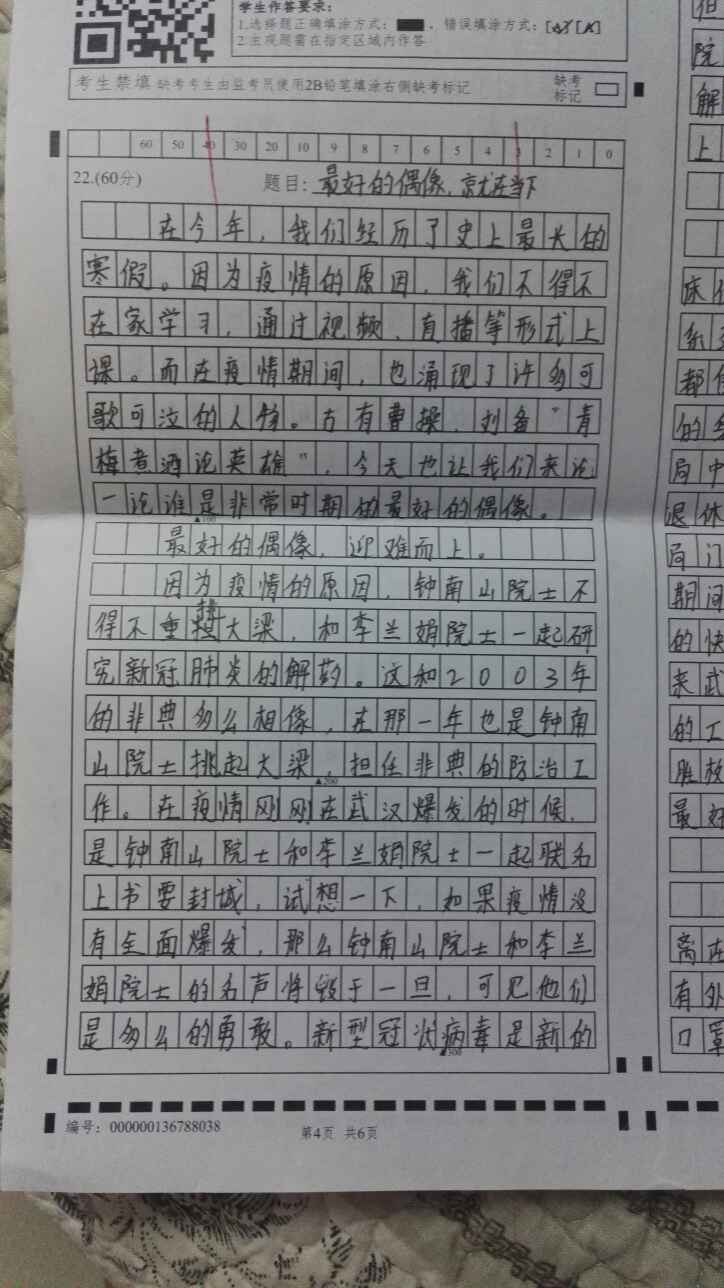 学生作答要求:
1.选择题正确填涂方式: ,错误填涂方式:
2.主观题需在指定区域内作答
考生禁填 缺考考生由监考员使用2B铅笔填涂右侧缺考标记
缺考
标记
60 50 40 30 20 10 9 8 7 6 5 4 3 2 1 0
22.(60分) 题目: 最好的偶像,就在当下
在今年,我们经历了史上最长的
寒假。因为疫情的原因,我们不得不
在家学习,通过视频、直播等形式上
课。而在疫情期间,也涌现了许多可
歌可泣的人物。古有曹操、刘备“青
梅煮酒论英雄”,今天也让我们来论
一论谁是非常时期的最好的偶像。
▲100
最好的偶像,迎难而上。
因为疫情的原因,钟南山院士不
得不重挑大梁,和李兰娟院士一起研
究新冠肺炎的解药。这和2003年
的非典多么相像,在那一年也是钟南
山院士挑起大梁,担任非典的防治工
▲200
作。在疫情刚刚在武汉爆发的时候,
是钟南山院士和李兰娟院士一起联名
上书要封城,试想一下,如果疫情没
有全面爆发,那么钟南山院士和李兰
娟院士的名声将毁于一旦,可见他们
是多么的勇敢。新型冠状病毒是新的
▲300
编号: 000000136788038
第4页 共6页
但
院
解
上
床
系
都
的
局中
退休
局门
期间
的快
来武
的工
胜
最好
离在
有外
口罩